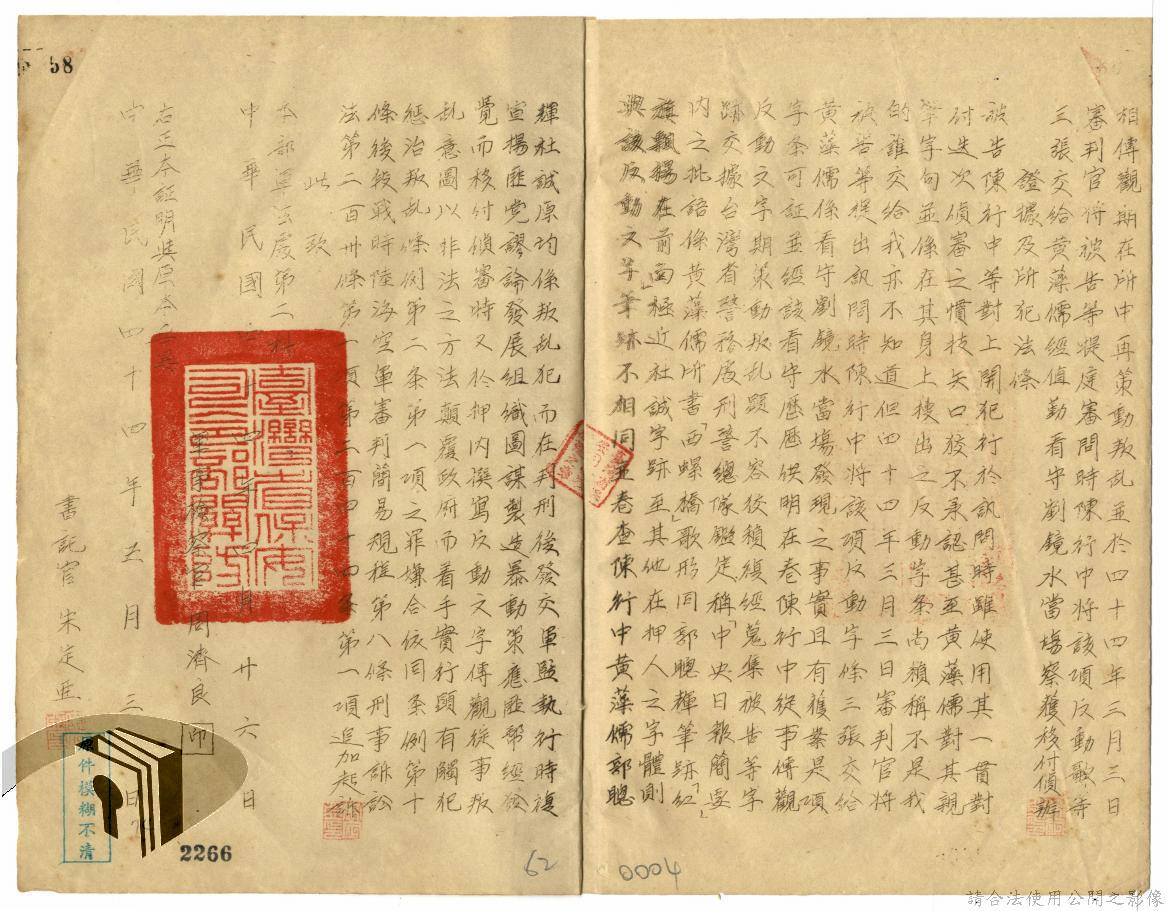 相傳觀期在所中再策動叛乱並於四十四年三月三日
審判官將被告等提庭審問時陳行中將該項反動歌等
三張交給黄藻儒經值勤看守劉鏡水當場察獲移付偵辦
證據及所犯法條
被告陳行中等對上開犯行於訊問時雖使用其一貫對
付迭次偵審之慣技矢口狡不承認甚至黄藻儒對其親
筆字句並係在其身上搜出之反動字条尚賴稱不是我
的誰交給我亦不知道但四十四年三月三日審判官將
被告等提出訊問時陳行中将該項反動字條三張交給
黄藻儒係看守劉鏡水當場發現之事實且有獲案是項
字条可証並經該看守歷歷供明在卷陳行中從事傳觀
反動文字期策動叛乱顕不容狡賴復經蒐集被告等字
跡交據台灣省警務處刑警總隊鑑定稱「中央日報簡要
内之批語係黄藻儒所書「西螺橋」歌形同郭聰輝筆跡「紅
旗飄揚在前面」極近社誠字跡至其他在押人之字體則
與該反動文字筆跡不相同並卷查陳行中黄藻儒郭聰
輝社誠原均係叛乱犯而在判刑後發交軍監執行時復
宣揚匪党謬論發展組織圖謀製造暴動策應匪帮經發
覺而移付偵審時又於押内撰寫反動文字傳觀從事叛
乱意圖以非法之方法顛覆政府而着手實行顕有觸犯
懲治叛乱條例第二条第一項之罪嫌合依同条例第十
條後段戰時陸海空軍審判簡易規程第八條刑事訴訟
法第二百卅條第一項第二百四十四条第一項追加起訴
此致
本部軍法處第二
中華民國四十四年四月廿六日
軍事檢察官 周濟良 印
右正本証明與原本無異
中華民國四十四年五月三日
書記官 朱定
臺灣省保安司令部
58
原件模糊不清
2266
62
0004
請合法使用公開之影像